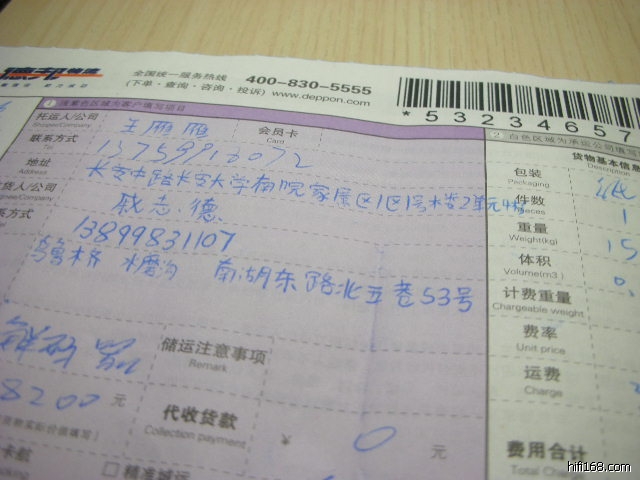 德邦物流
全国统一服务热线 400-830-5555
(下单·查询·咨询·投诉) www.deppon.com
*53234657
① 浅紫色区域为客户填写项目
② 白色区域为承运公司填写
托运人/公司 王雁雁 会员卡
Shipper/Company Card
联系方式
Tel
地址 长安中路长安大学南院家属区1区1号楼2单元4楼
Address
货人/公司 戚志德
/Company
系方式 13899831107
乌鲁木齐 水磨沟 南湖东路北五巷53号
货物基本信息
包装 纸
Packaging
件数 1
Pieces
重量 15
Weight(kg)
体积 0.
Volume(m3)
计费重量
Chargeable weight
费率
Unit price
运费
Charge
费用合计
Total Charge
储运注意事项
Remark
8200 元
货物实际价值填写)
代收货款 ¥ 0 元
Collection payment
卡航
□ 精准城运
hifi168.com